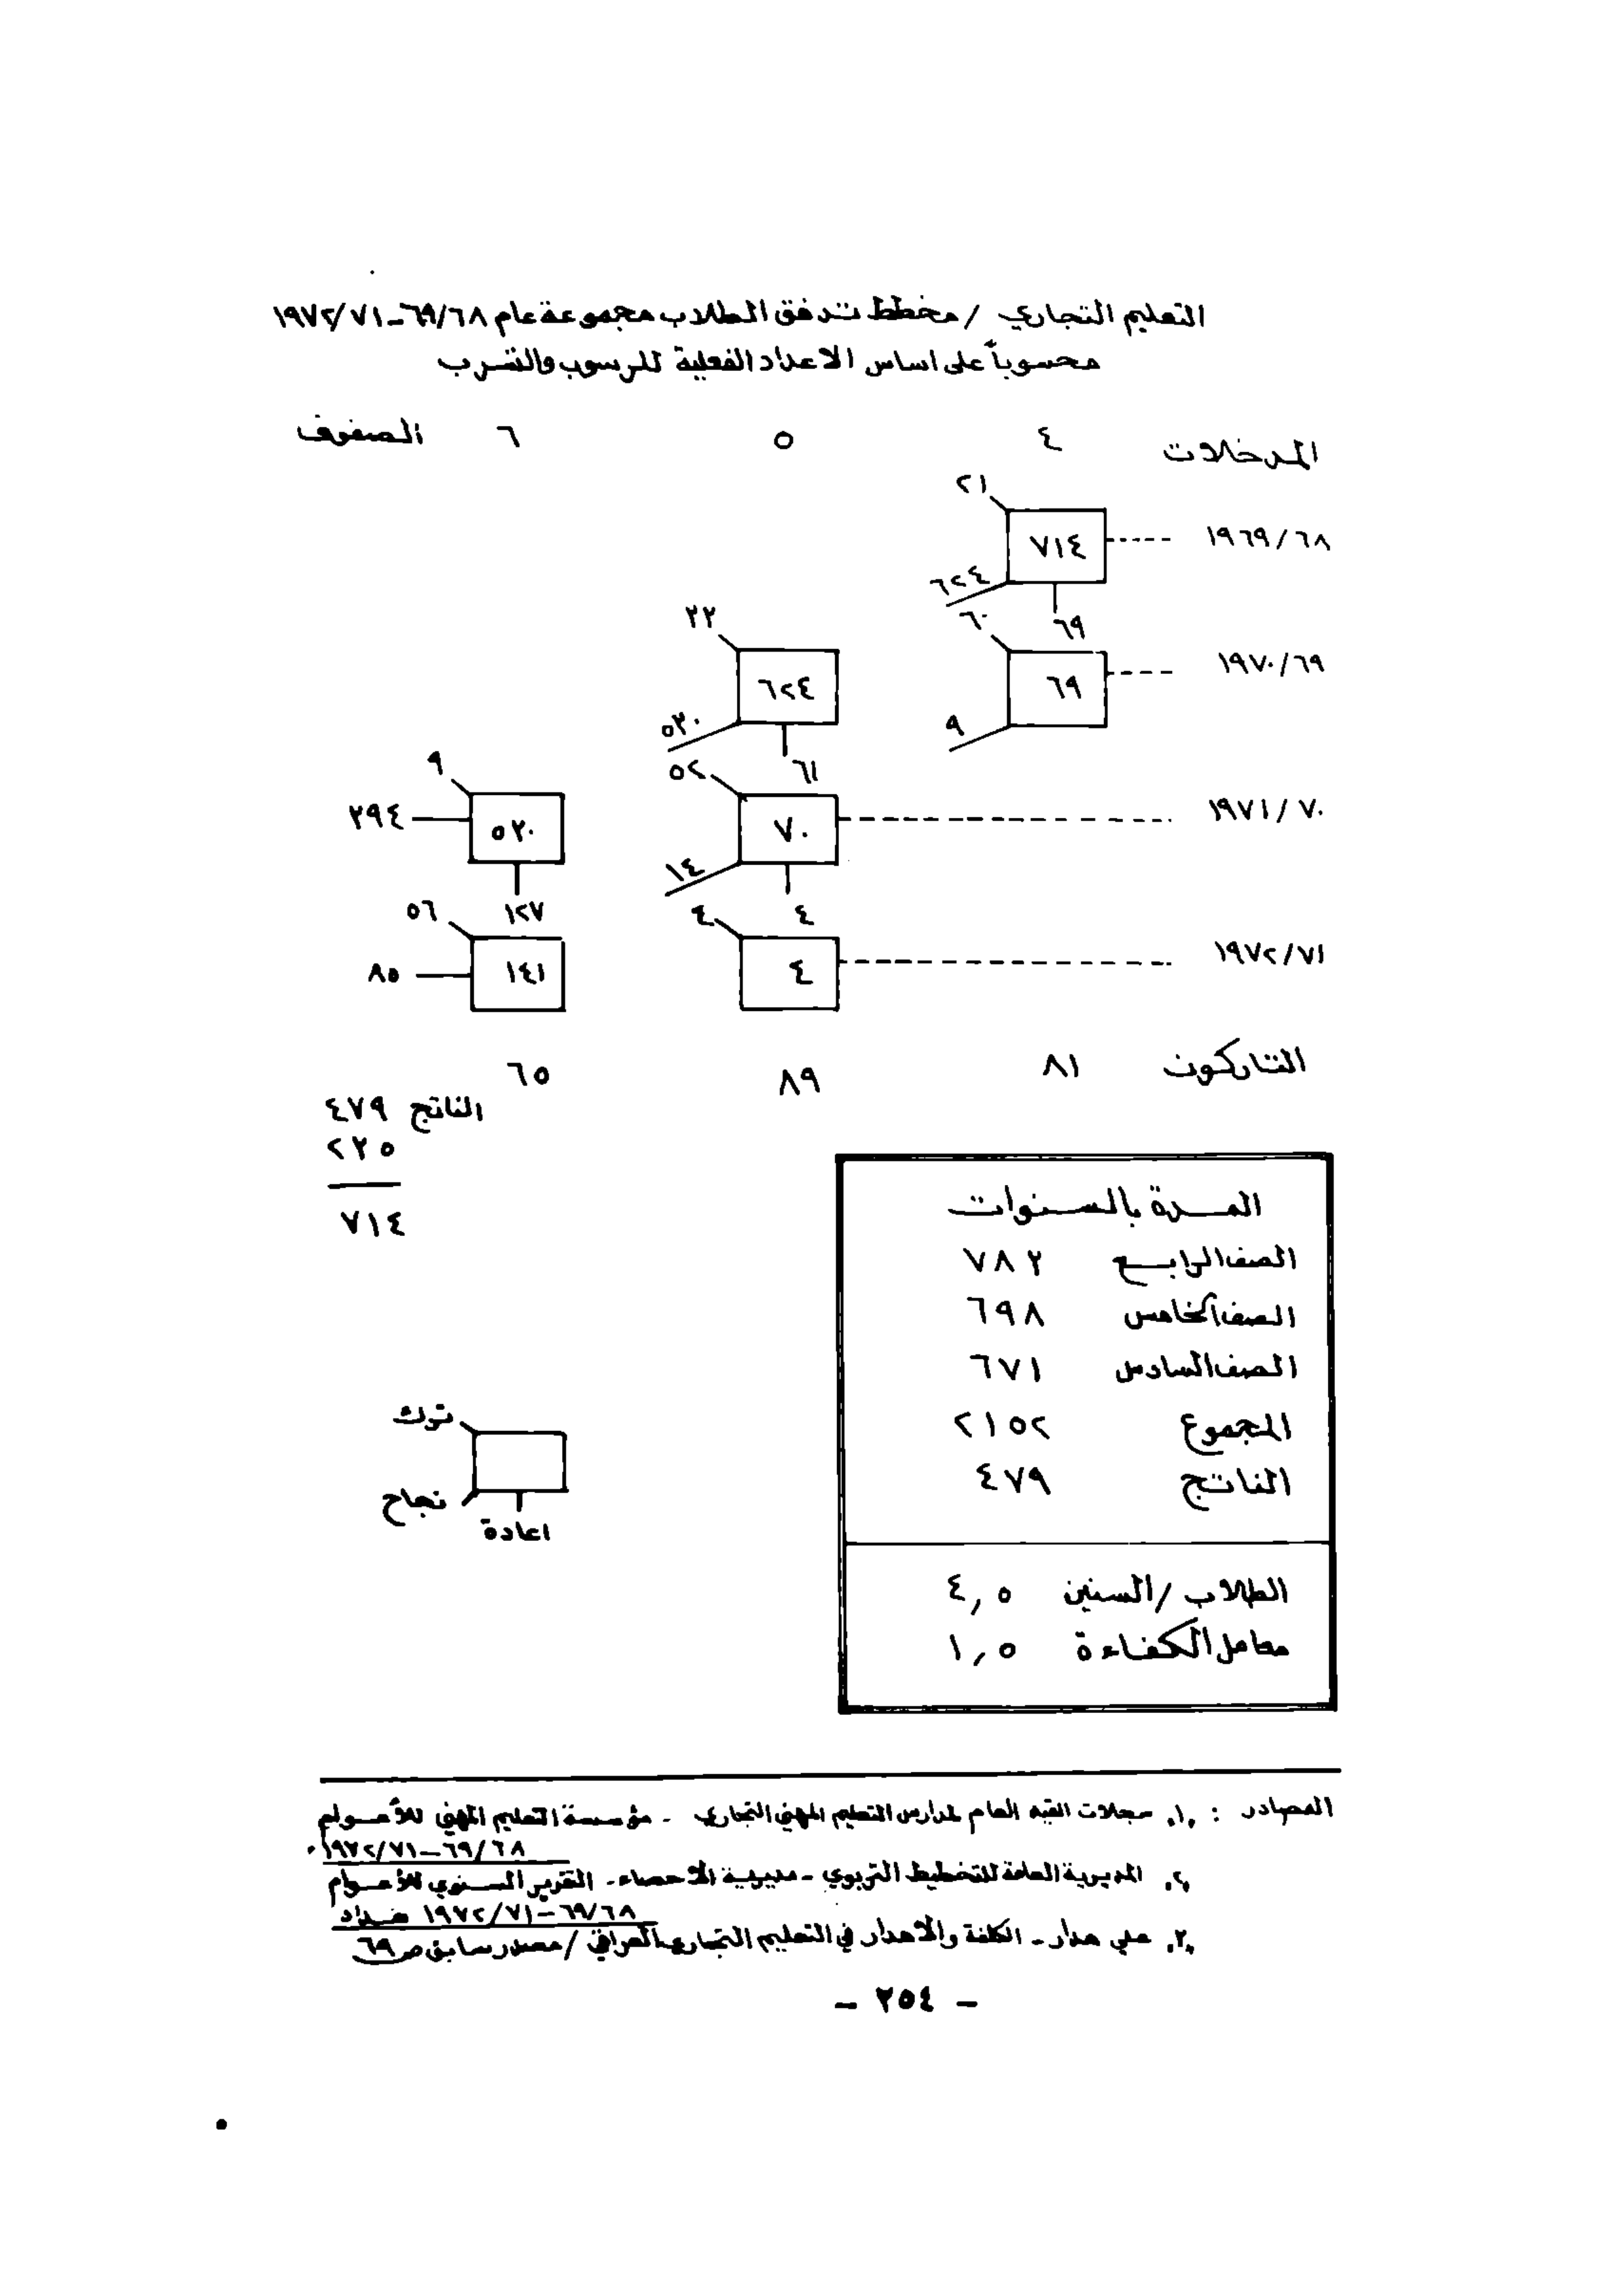 التعليم التجاري / مخطط تدفق الطلاب مجموعة عام ٦٩/٦٨-١٩٧٢/٧١
محسوباً على اساس الاعداد الفعلية للرسوب والتسرب
المدخلات ٤ ٥ ٦ الصفوف
٢١
١٩٦٩/٦٨ ٧١٤
٦٢٤
٦٩ ٦٠ ٣٣
١٩٧٠/٦٩ ٦٩ ٦٢٤
٩ ٥٣٠
٦١ ٥٢ ٩
١٩٧١/٧٠ ٧٠ ٥٣٠ ٣٩٤
١٤
٤ ٤ ١٢٧ ٥٦
١٩٧٢/٧١ ٤ ١٤١ ٨٥
التاركون ٨١ ٨٩ ٦٥
الناتج ٤٧٩
٢٣٥
٧١٤
المدة بالسنوات
الصف الرابع ٧٨٣
الصف الخامس ٦٩٨
الصف السادس ٦٧١
المجموع ٢١٥٢
الناتج ٤٧٩
الطلاب / السنين ٤,٥
معامل الكفاءة ١,٥
ترك
نجاح
اعادة
المصادر : ١. سجلات القيد العام لمدارس التعليم المهني التجاري - مؤسسة التعليم المهني للأعوام
٦٩/٦٨-١٩٧٢/٧١.
٢. المديرية العامة للتخطيط التربوي - مديرية الاحصاء - التقرير السنوي للأعوام
٦٩/٦٨-١٩٧٢/٧١ بغداد
٣. علي هدار - الكلفة والاهدار في التعليم التجاري العراقي / مصدر سابق ص ٦٩
- ٢٥٤ -